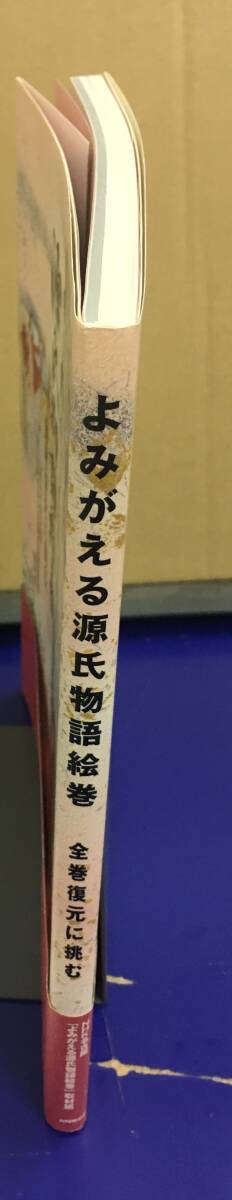 よみがえる源氏物語絵巻
全巻復元に挑む
「よみがえる源氏物語絵巻」取材班